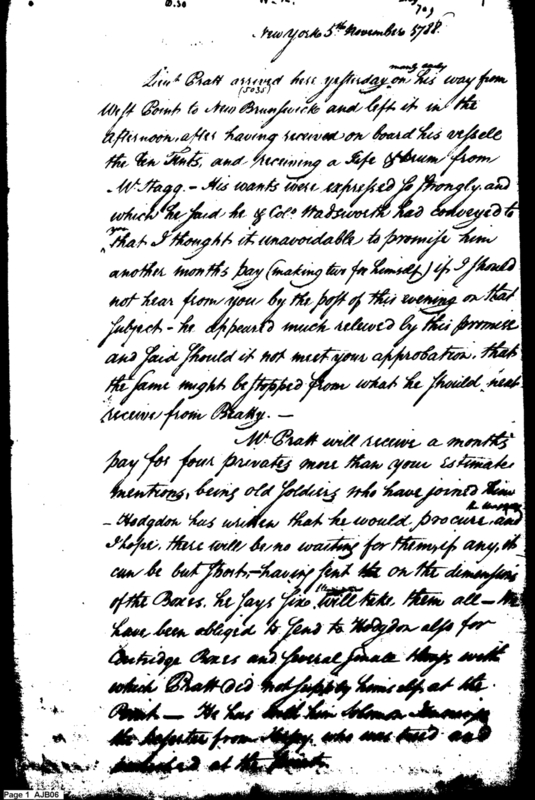 709
New York 5th November 1788
many early
Lieut Pratt arrived here yesterday on his way from
(5035)
West Point to New Brunswick and left it in the
afternoon, after having received on board his vessell
the ten Tents, and receiving a Fife & Drum from
Mr Stagg. – His wants were expressed so strongly, and
which he said he & Colo Wadsworth had conveyed to
you
that I thought it unavoidable to promise him
another months pay (making two for himself) if I should
not hear from you by the post of this evening on that
subject – he appeared much releived by this promise
and said should it not meet your approbation, that
the same might be stopped from what he should next
receive from Beatty. –
Mr Pratt will receive a months
pay for four privates more than your Estimate
mentions, being old soldiers who have joined
– Hodgdon has written that he would procure and
I hope there will be no waiting for them, if any, it
can be but short, – having sent on the dimensions
of the Boxes, he says six will take them all – We
have been obliged to send to Hodgdon also for
Cartridge Boxes and several small things with
which Pratt did not supply himself at the
Point – He has with him Solomon
the deserter from who was tried and
at the Point.
Page 1 AJB06